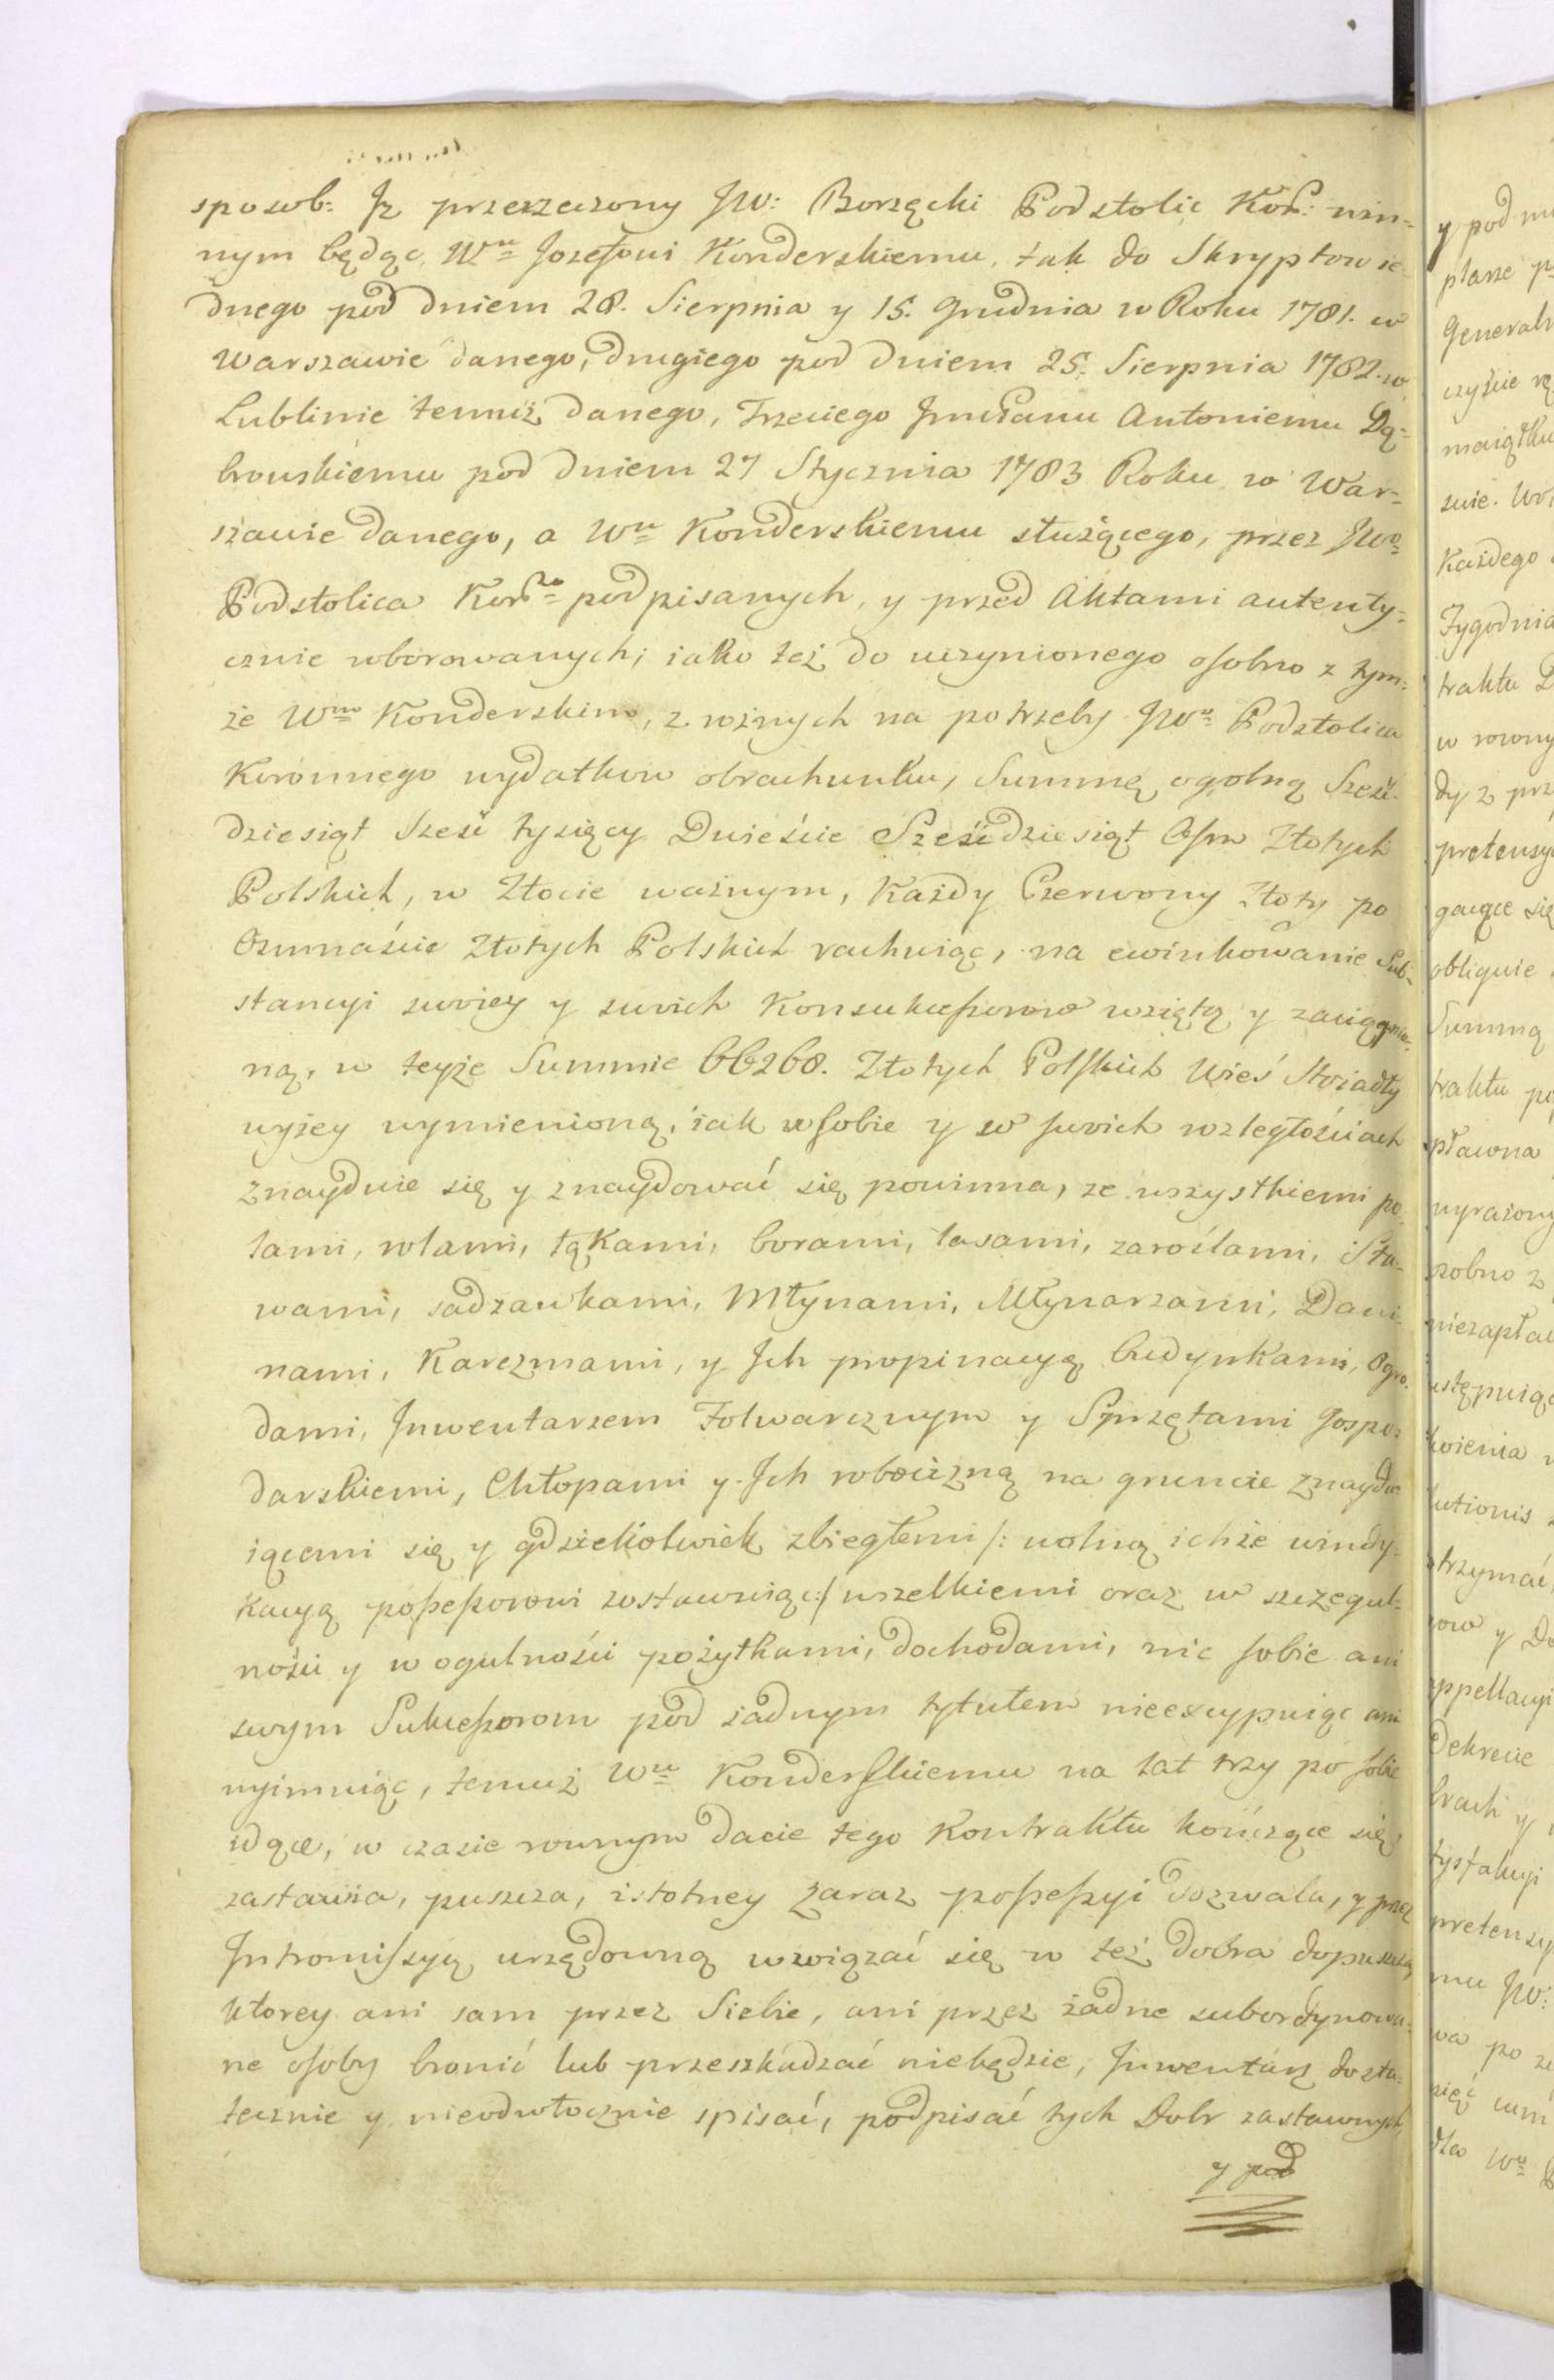 sposob: Jż przerzeczony JW: Borzęcki Podstolic Kor: win-
nym będąc Wu Jozefowi Konderskiemu, tak do Skryptow ie-
dnego pod dniem 28. Sierpnia y 15. Grudnia w Roku 1781. w
Warszawie danego, drugiego pod dniem 25. Sierpnia 1782. w
Lublinie temuż danego, Trzeciego Jmć Panu Antoniemu Dą-
browskiemu pod dniem 27 Stycznia 1783 Roku w War-
szawie danego, a Wu Konderskiemu służącego, przez JWo
Podstolica Kor podpisanych, y przed Aktami autenty-
cznie roborowanych; iako też do uczynionego osobno z tym-
że Wm Konderskim, z rożnych na potrzeby JWo Podstolica
Koronnego wydatkow obrachunku, Summę ogolną Sześć-
dziesiąt Sześć tysięcy Dwieście Sześcdziesiąt Osm Złotych
Polskich, w Złocie ważnym, Każdy Czerwony Złoty po
Osmnaście Złotych Polskich rachuiąc, na ewinkowanie Sub-
stancyi swoiey y swoich Konsukcessorow wziętą y zaciągnio-
ną, w teyże Summie 66268. Złotych Polskich Wieś Stviadły
wyżey wymienioną, iak w sobie y w swoich rozległościach
znayduie się y znaydować się powinna, ze wszystkiemi po-
lami, rolami, łąkami, borami, lasami, zaroślami, Sta-
wami, sadzawkami, Młynami, Młynarzami, Dani-
nami, Karczmami, y Jch propinacyą budynkami, Ogro-
dami, Jnwentarzem Folwarcznym y Sprzętami Gospo-
darskiemi, Chłopami y Jch robocizną na gruncie znaydu-
iącemi się y gdziekolwiek zbiegłemi /: wolną ichże windy-
kacyą possessorowi zostawuiąc :/ wszelkiemi oraz w szczegul-
ności y w ogulności pożytkami, dochodami, nic sobie ani
swym Sukcessorom pod żadnym tytułem nieexcypuiąc ani
wyimuiąc, temuż Wu Konderskiemu na lat trzy po sobie
idące, w czasie rownym dacie tego Kontraktu kończące się
zastawia, puszcza, istotney zaraz possessyi dozwala, y przez
Jntromissyą urzędowną wwiązać się w też dobra dopuszcza,
ktorey ani sam przez Siebie, ani przez żadne subordynowa-
ne osoby bronić lub przeszkadzać niebędzie, Jnwentarz dosta-
tecznie y nieodwłocznie spisać, podpisać tych Dobr zastawnych,
y pod
y pod
Generaln
maiątku
Każdego
Tygodnia
traktu
w rowny
dy z prz
pretensy
gaiące się
obliguie
Summą
traktu
wyrażony
niezapłac
trzymać
appellacyi
Dekrecie
pretensy
mu JW: